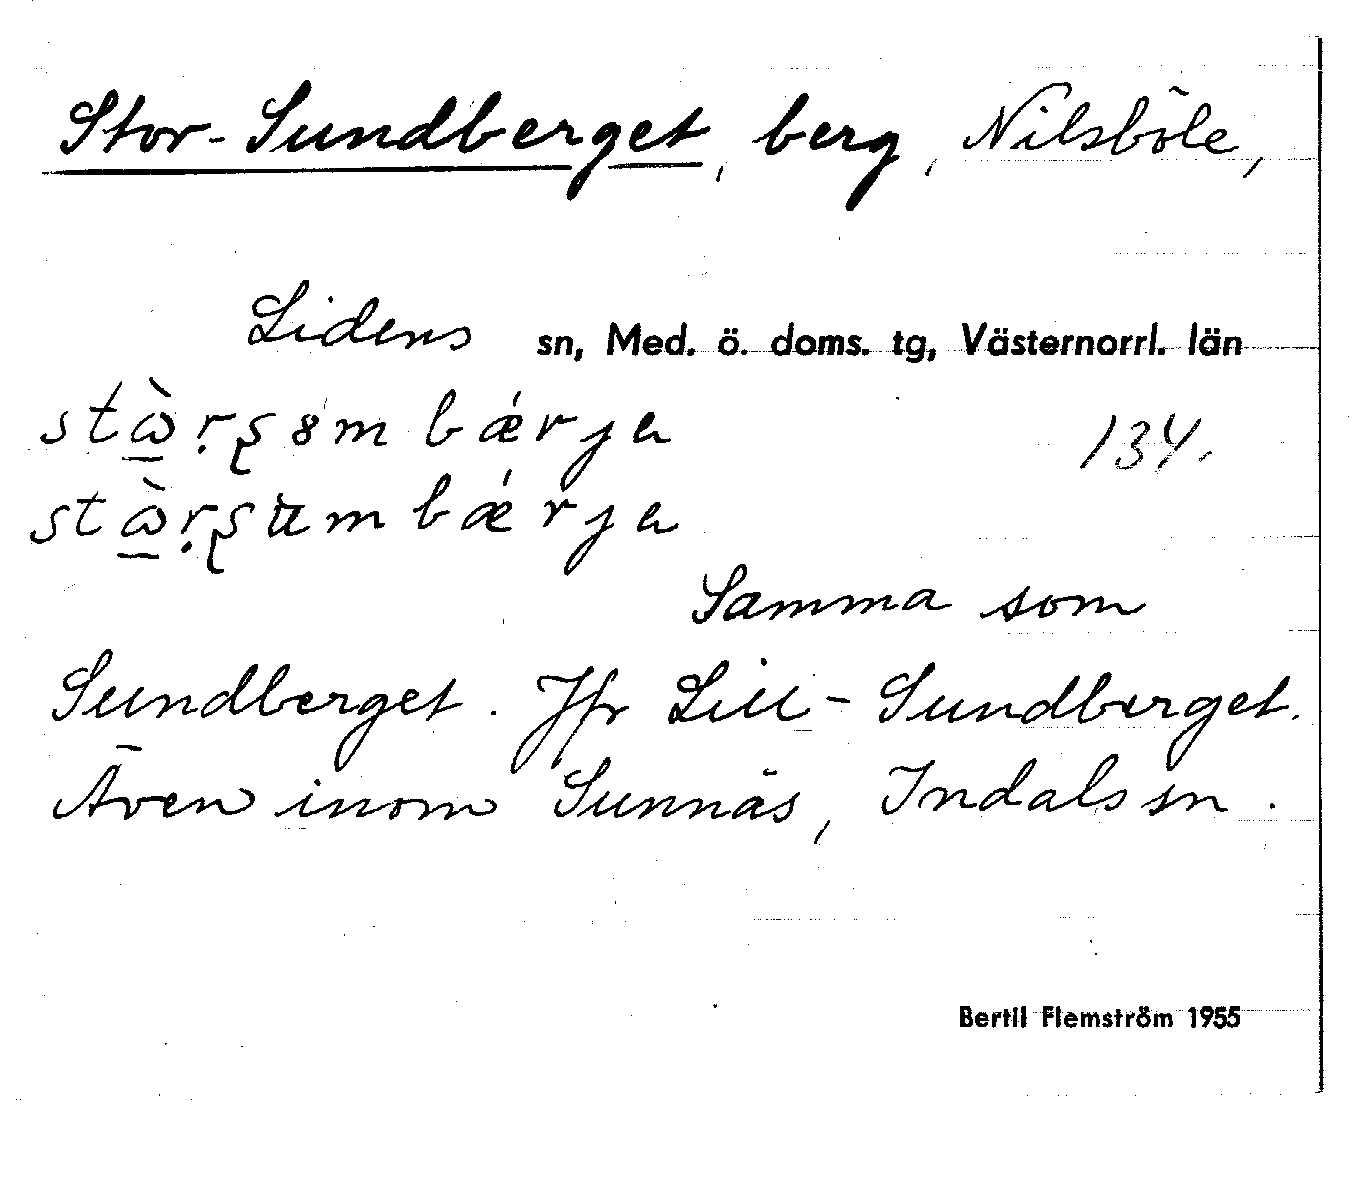 Stor-Sundberget, berg, Nilsböle,
Lidens sn, Med. ö. doms. tg, Västernorrl. län
stὼ̲ṛʂ8m bǽrja 134.
stὼ̲ṛʂʉm bǽrja
Samma som
Sundberget. Jfr Lill-Sundberget.
Även inom Sunnäs, Indals sn.
Bertil Flemström 1955